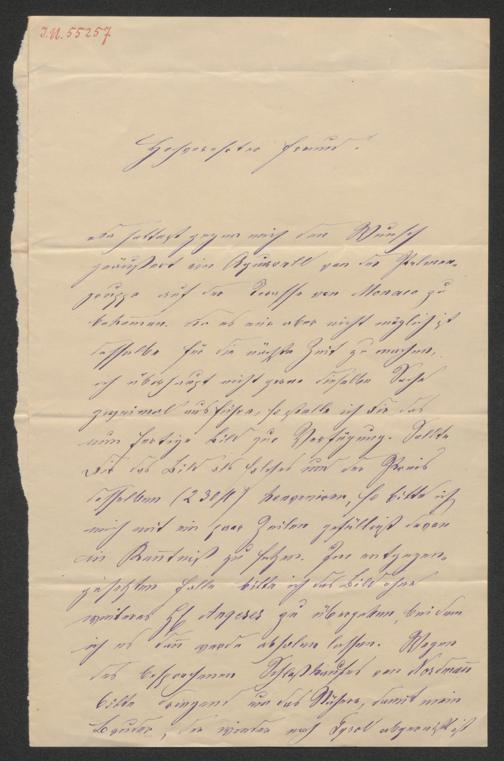 J.N. 55257
Hochverehrter Freund.
Du hattest gegen mich den Wunsch
geäußert ein Aquarell von der Palmen-
gruppe auf der Terasse von Monaco zu
bekommen. Da es mir aber nicht möglich ist
dasselbe für die nächste Zeit zu machen,
ich überhaupt nicht gerne dieselbe Sache
zweimal ausführe, so stelle ich Dir das
nun fertige Bild zur Verfügung. Sollte
Dir das Bild als solches und der Preis
desselben (230 fl) konveniren, so bitte ich
mich mit ein paar Zeilen gefälligst davon
in Kenntniß zu setzen. Im entgegen-
gesetzten Falle bitte ich das Bild ohne
weiteres zu übergeben, bei dem
ich es dann werde abholen lassen. Wegen
des besprochenen von Nordmann
bitte dringend um das Nähere, damit mein
Bruder, der wieder nach Tyrol abgereist ist